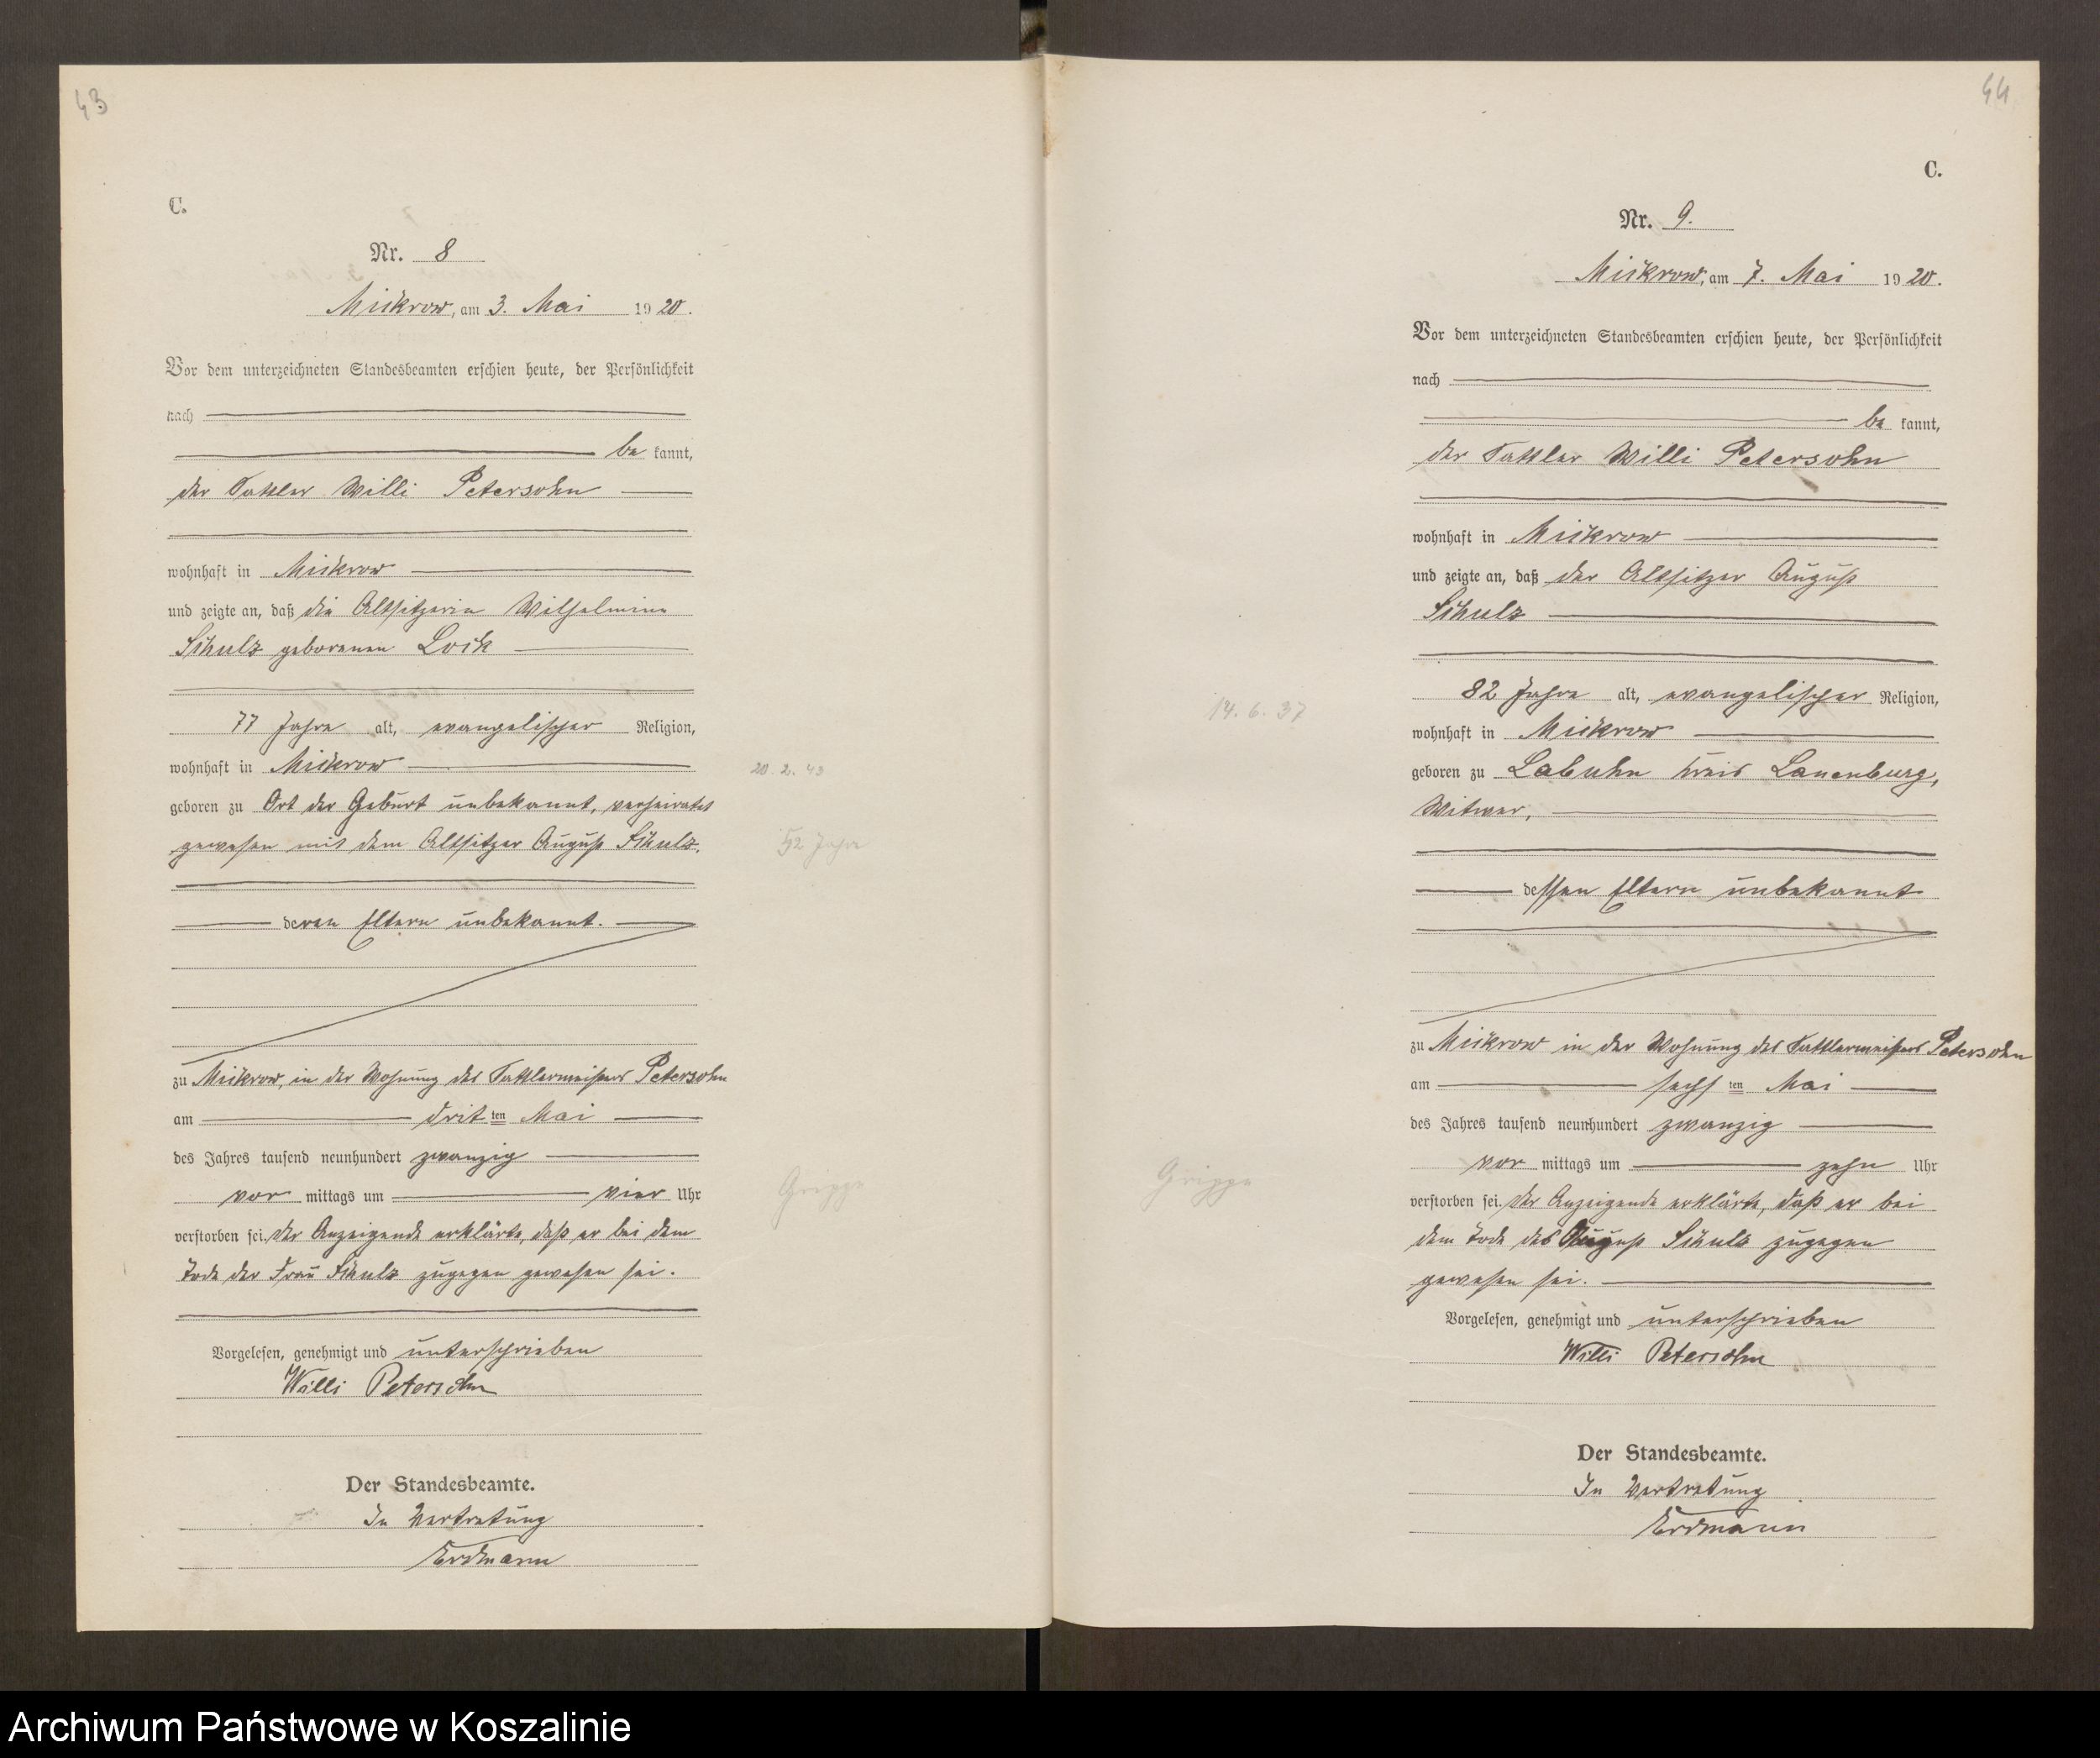 43
C.
Nr. 8
Mickrow, am 3. Mai 1920.
Vor dem unterzeichneten Standesbeamten erschien heute, der Persönlichkeit
nach
be kannt,
der Sattler Willi Petersohn
wohnhaft in Mickrow
und zeigte an, daß die Altsitzerin Wilhelmine
Schulz geborenen Lock
77 Jahre alt, evangelischer Religion,
wohnhaft in Mickrow
20. 2. 43
geboren zu Ort der Geburt unbekannt, verheiratet
gewesen mit dem Altsitzer August Schulz.
52 Jahre
deren Eltern unbekannt.
zu Mickrow, in der Wohnung des Sattlermeisters Petersohn
am dritten Mai
des Jahres tausend neunhundert zwanzig
vor mittags um vier Uhr
Grippe
verstorben sei. Der Anzeigende erklärte, daß er bei dem
Tode der Frau Schulz zugegen gewesen sei.
Vorgelesen, genehmigt und unterschrieben
Willi Petersohn
Der Standesbeamte.
In Vertretung
Erdmann
44
C.
Nr. 9.
Mickrow, am 7. Mai 1920.
Vor dem unterzeichneten Standesbeamten erschien heute, der Persönlichkeit
nach
be kannt,
der Sattler Willi Petersohn
wohnhaft in Mickrow
und zeigte an, daß der Altsitzer August
Schulz
14. 6. 37
82 Jahre alt, evangelischer Religion,
wohnhaft in Mickrow
geboren zu Labuhn Kreis Lauenburg,
Witwer,
dessen Eltern unbekannt
zu Mickrow in der Wohnung des Sattlermeisters Petersohn
am sechsten Mai
des Jahres tausend neunhundert zwanzig
vor mittags um zehn Uhr
Grippe
verstorben sei. Der Anzeigende erklärte, daß er bei
dem Tode des August Schulz zugegen
gewesen sei.
Vorgelesen, genehmigt und unterschrieben
Willi Petersohn
Der Standesbeamte.
In Vertretung
Erdmann
Archiwum Państwowe w Koszalinie